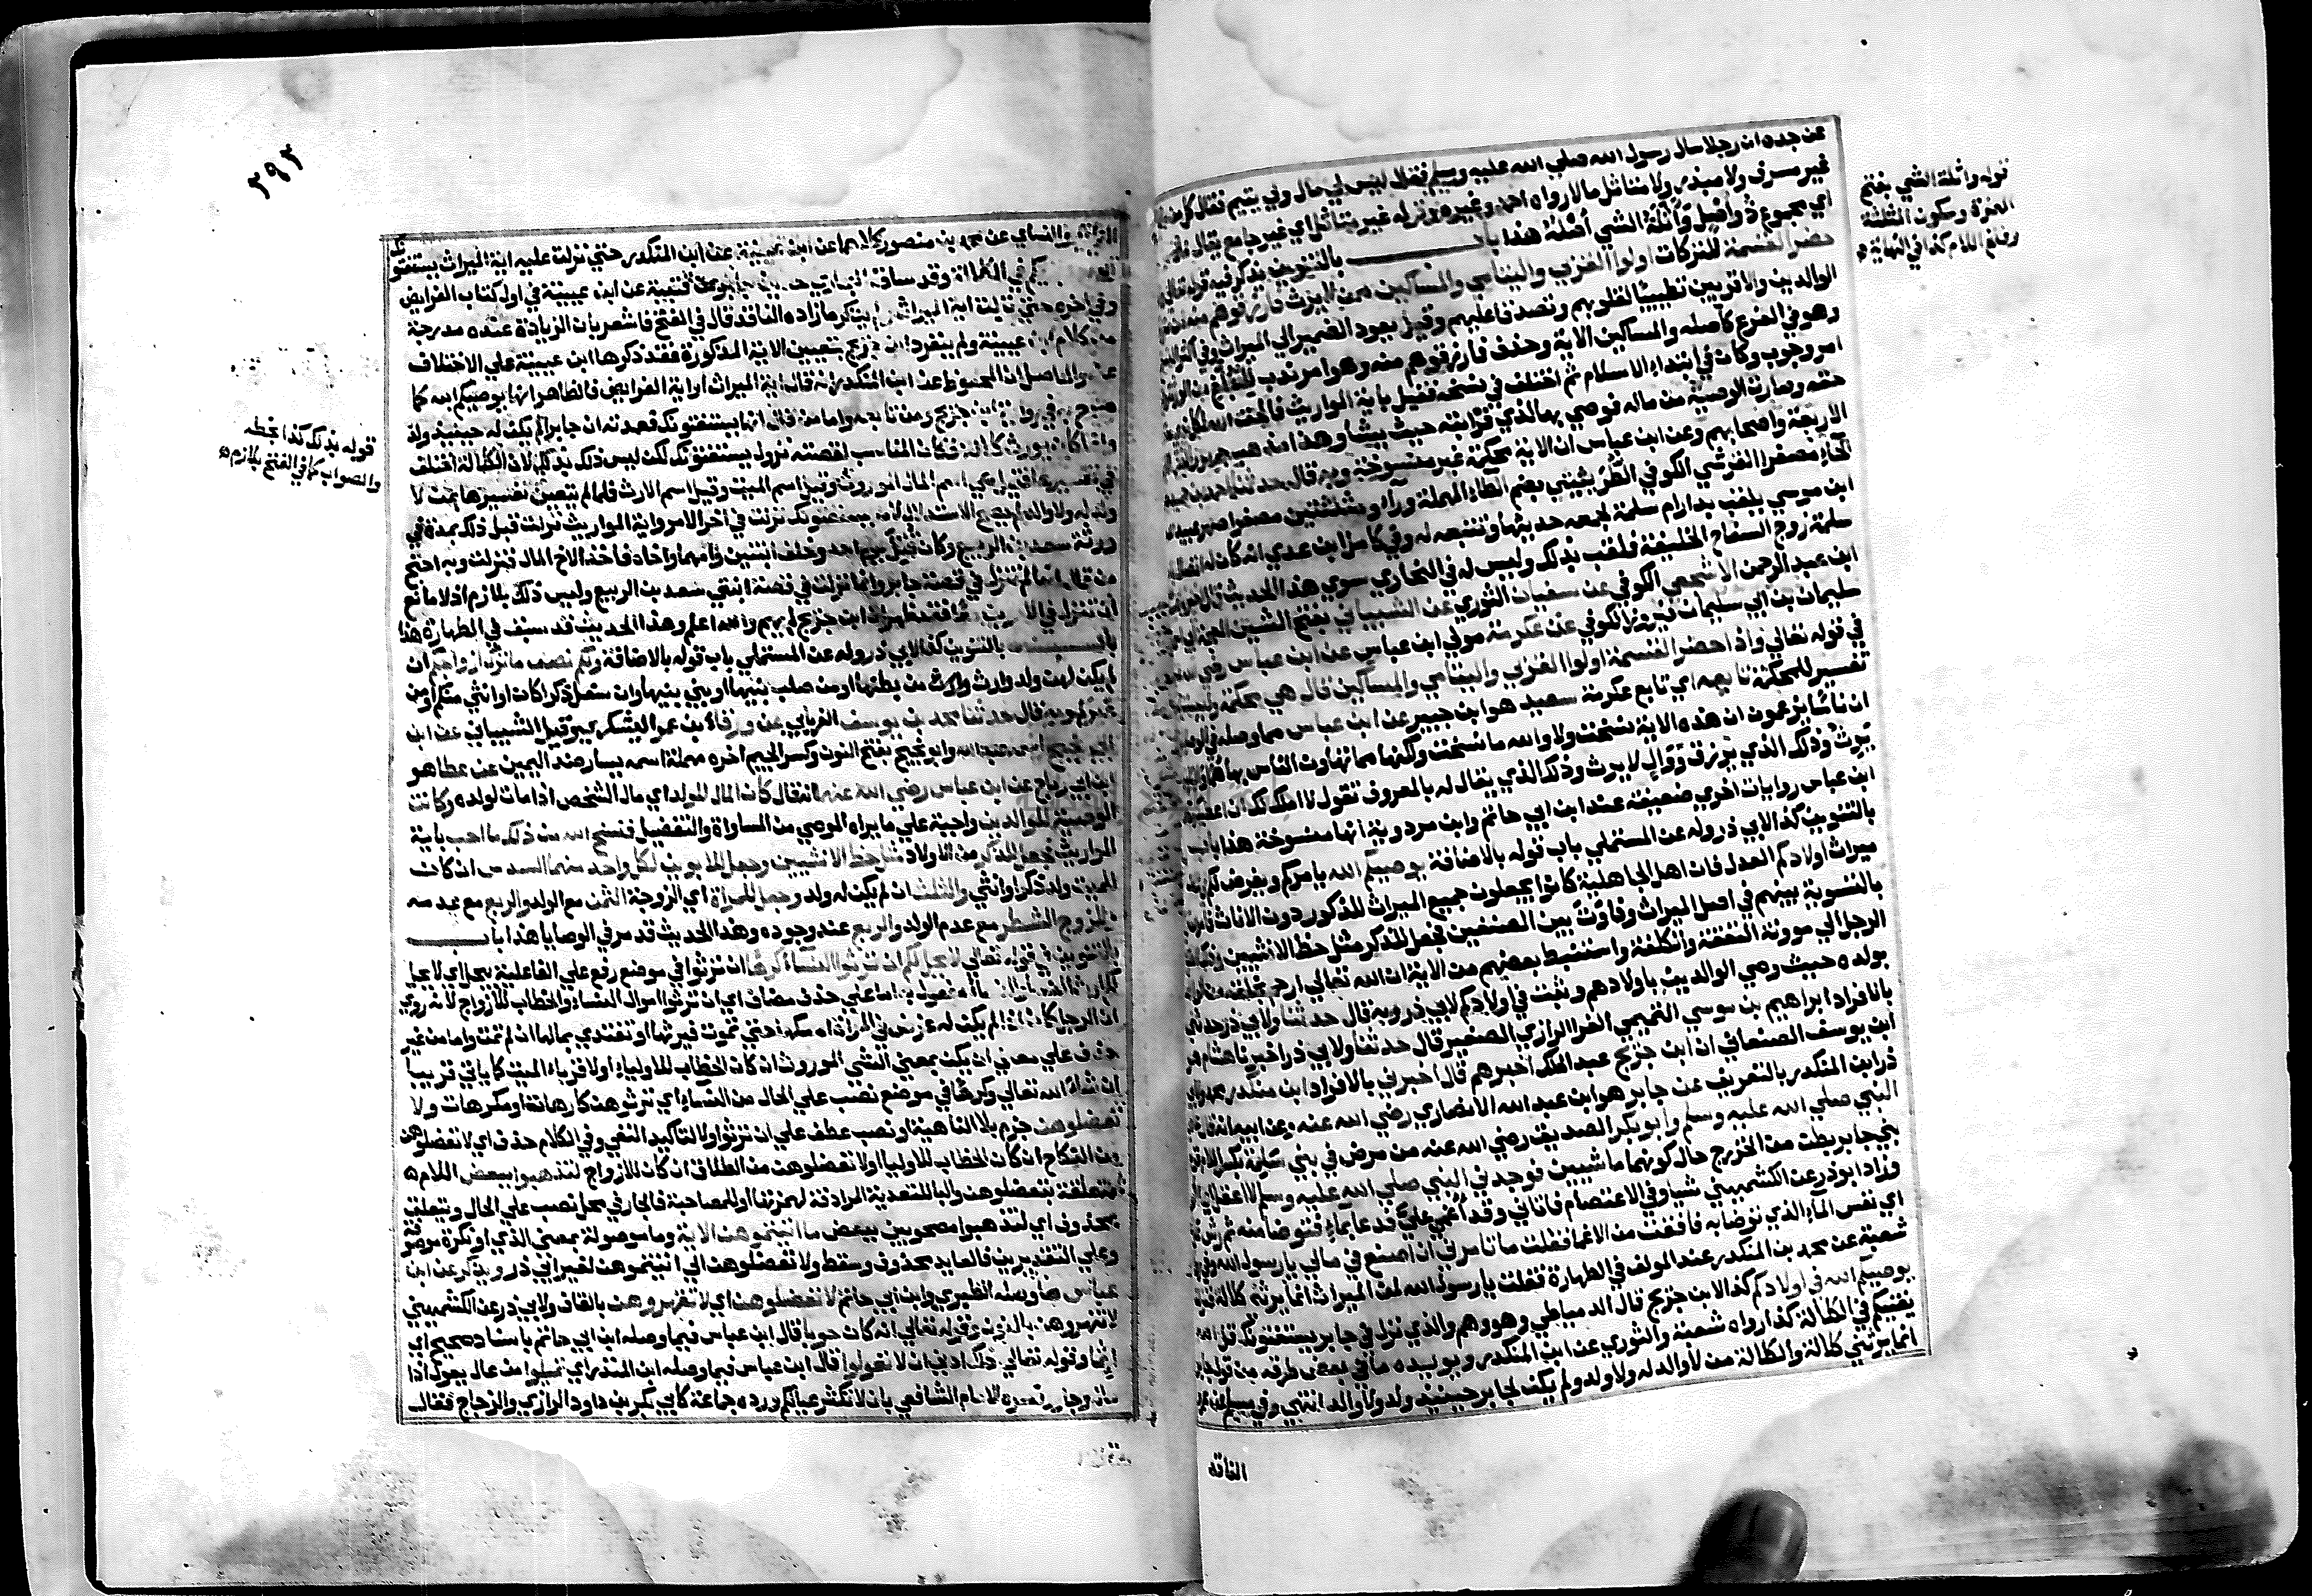 عن جده ان رجلا سال رسول الله صلي الله عليه وسلم فقال ليس لي مال ولي يتيم فقال كل من
غير مسرف ولا مبذر ولا متاثل مالا رواه احمد وغيره وقوله غير متاثل اي غير جامع يقال
اي مجموع ذو اصل واثلة الشي اصله هذا باب بالتنوين يذكر فيه قوله تعالي
حضر القسمة للتركات اولوا القربي واليتامي والمساكين ممن لا يرث فارزقوهم منه
الوالدين والاقربين تطييبا لقلوبهم وتصدقا عليهم وقيل يعود الضمير الي الميراث وفي
وهو في الفرع كاصله والمساكين الاية وحذف فارزقوهم منه وهو امر ندب للبلغ من الورثة
امر وجوب وكان في ابتداء الاسلام ثم اختلف في نسخه فقيل باية المواريث فالحق الله لكل
حقه وصارت الوصية من ماله يوصي بها لذي قرابته حيث يشا وهذا مذهب جمهور
الاربعة واصحابهم وعن ابن عباس ان الاية محكمة غير منسوخة وبه قال حدثنا احمد بن حميد
الحاء مصغرا القرشي الكوفي الطريثيثي بضم الطاء المهملة وراء ومثلثتين مصغرا صهر عبيد
ابن موسي يلقب بدار ام سلمة لجمعه حديثها وتتبعه له وفي كامل ابن عدي انه كان له اتصال
سلمة زوج السفاح الخليفة فلقب بذلك وليس له في البخاري سوي هذا الحديث قال اخبرنا عبيد
ابن عبد الرحمن الاشجعي الكوفي عن سفيان الثوري عن الشيباني بفتح الشين المعجمة ابي
سليمان بن ابي سليمان فيروز الكوفي عن عكرمة مولي ابن عباس عن ابن عباس رضي
في قوله تعالي واذا حضر القسمة اولوا القربي واليتامي والمساكين قال هي محكمة وليست
تفسير للمحكمة تابعه اي تابع عكرمة سعيد هو ابن جبير عن ابن عباس مما وصله في الوصايا
ان ناسا يزعمون ان هذه الاية نسخت ولا والله ما نسخت ولكنها مما تهاون الناس بها هما
يرث وذلك الذي يرزق ووال لا يرث وذلك الذي يقال له بالمعروف تقول لا املك لك ان اعطيك
ابن عباس روايات اخري ضعيفة عند ابن ابي حاتم وابن مردوية انها منسوخة هذا باب
بالتنوين كذا لابي ذر وله عن المستملي باب قوله بالاضافة يوصيكم الله يامركم ويفرض لكم
ميراث اولادكم العدل فان اهل الجاهلية كانوا يجعلون جميع الميراث للذكور دون الاناث
بالتسوية بينهم في اصل الميراث وفاوت بين الصنفين فجعل للذكر مثل حظ الانثيين
الرجل الي موونة النفقة والكلفة واستنبط بعضهم من الاية ان الله تعالي ارحم بخلقه
بولده حيث وصي الوالدين باولادهم وثبت في اولادكم لابي ذر وبه قال حدثنا ولابي ذر حدثني
بالافراد ابراهيم بن موسي التميمي الفرا الرازي الصغير قال حدثنا ولابي ذر اخبرنا هشام هو
ابن يوسف الصنعاني ان ابن جريج عبد الملك اخبرهم قال اخبرني بالافراد ابن منكدر محمد
ذر ابن المنكدر بالتعريف عن جابر هو ابن عبد الله الانصاري رضي الله عنه وعن ابيه انه قال
النبي صلي الله عليه وسلم وابو بكر الصديق رضي الله عنه من مرض في بني سلمة بكسر اللام
بني جابر بطن من الخزرج حال كونهما ماشيين فوجدني النبي صلي الله عليه وسلم لا اعقل
وزاد ابو ذر عن الكشميهني شيا وفي الاعتصام فاتاني وقد اغمي علي فدعا بماء فتوضا منه ثم رش
اي نفس الماء الذي توضا به فافقت من الاغما فقلت ما تامرني ان اصنع في مالي يا رسول الله
شعبة عن محمد بن المنكدر عند المولف في الطهارة فقلت يا رسول الله لمن الميراث انما يرثني كلالة
يوصيكم الله في اولادكم كذا لابن جريج قال الدمياطي وهو وهم والذي نزل في جابر يستفتونك قل الله
يفتيكم في الكلالة كذا رواه شعبة والثوري عن ابن المنكدر ويويده ما في بعض طرقه من قول جابر
انما يرثني كلالة والكلالة من لا والد له ولا ولد ولم يكن لجابر حينيذ ولد ولا والد انتهي وفي مسلم عن
الناقد
قوله واثلة الشي بفتح
الهمزة وسكون المثلثة
وفتح اللام كذا في النهاية
٢٩٢
والنساي عن محمد بن منصور كلاهما عن ابن عيينة عن ابن المنكدر حتي نزلت عليه اية الميراث يستفتونك
في الكلالة وقد ساق البخاري حديث جابر عن قتيبة عن ابن عيينة في اول كتاب الفرايض
وفي اخره حتي نزلت اية الميراث ولم يذكر ما زاده الناقد قال في الفتح فاشعر بان الزيادة عنده مدرجة
من كلام ابن عيينة ولم ينفرد ابن جريج بتعيين الاية المذكورة فقد ذكرها ابن عيينة علي الاختلاف
عنه والحاصل ان المحفوظ عن ابن المنكدر انه قال اية الميراث او اية الفرايض فالظاهر انها يوصيكم الله كما
صرح به في رواية ابن جريج ومن تابعه واما من قال انها يستفتونك فعمدته ان جابرا لم يكن له حينيذ ولد
وانما كان يورث كلالة فكان المناسب لقصته نزول يستفتونك لكن ليس ذلك بذلك لان الكلالة اختلف
في تفسيرها فقيل هي اسم المال الموروث وقيل اسم الميت وقيل اسم الارث فلما لم يتعين تفسيرها بمن لا
ولد له ولا والد لم يصح الاستدلال لان يستفتونك نزلت في اخر الامر واية المواريث نزلت قبل ذلك بمدة في
ورثة سعد بن الربيع وكان قتل يوم احد وخلف ابنتين وامهما واخاه فاخذ الاخ المال فنزلت وبه احتج
من قال انها لم تنزل في قصة جابر وانما نزلت في قصة ابنتي سعد بن الربيع وليس ذلك بلازم اذ لا مانع
ان تنزل في الامرين معا فقد ظهر ان ابن جريج لم يهم والله اعلم وهذا الحديث قد سبق في الطهارة هذا
باب بالتنوين كذا لابي ذر وله عن المستملي باب قوله بالاضافة ولكم نصف ما ترك ازواجكم ان
لم يكن لهن ولد وارث من بطنها او من صلب بنيها او بني بنيها وان سفل ذكرا كان او انثي منكم او من
غيركم وبه قال حدثنا محمد بن يوسف الفريابي عن ورقاء بن عمر اليشكري وقيل الشيباني عن ابن
ابي نجيح اسمه عبد الله وابو نجيح بفتح النون وكسر الجيم اخره مهملة اسمه يسار ضد اليمين عن عطا هو
ابن ابي رباح عن ابن عباس رضي الله عنهما انه قال كان المال للولد اي مال الشخص اذا مات لولده وكانت
الوصية للوالدين واجبة علي ما يراه الموصي من المساواة والتفضيل فنسخ الله من ذلك ما احب باية
المواريث فجعل للذكر من الاولاد مثل حظ الانثيين وجعل للابوين لكل واحد منهما السدس ان كان
للميت ولد ذكر او انثي والثلث ان لم يكن له ولد وجعل للمراة اي الزوجة الثمن مع الولد والربع مع عدمه
وللزوج الشطر مع عدم الولد والربع عند وجوده وهذا الحديث قد مر في الوصايا هذا باب
بالتنوين في قوله تعالي لا يحل لكم ان ترثوا النساء كرها ان ترثوا في موضع رفع علي الفاعلية بيحل اي لا يحل
لكم ارث النساء والنساء مفعول به اما علي حذف مضاف اي ان ترثوا اموال النساء والخطاب للازواج لانه روي
ان الرجل كان اذا لم يكن له غرض في المراة امسكها حتي تموت فيرثها او تفتدي بمالها ان لم تمت واما من غير
حذف علي معني ان يكن بمعني الشي الموروث ان كان الخطاب للاولياء او لاقرباء الميت كما ياتي قريبا
ان شاء الله تعالي وكرها في موضع نصب علي الحال من النساء اي ترثوهن كارهات او مكرهات ولا
تعضلوهن جزم بلا الناهية او نصب عطف علي ان ترثوا ولا لتاكيد النفي وفي الكلام حذف اي لا تعضلوهن
من النكاح ان كان الخطاب للاوليا او لا تعضلوهن من الطلاق ان كان للازواج لتذهبوا ببعض اللام
متعلقة بتعضلوهن والبا للتعدية المرادفة لهمزتها او للمصاحبة فالجار في محل نصب علي الحال ويتعلق
بمحذوف اي لتذهبوا مصحوبين ببعض ما اتيتموهن الاية وما موصولة بمعني الذي او نكرة موصوفة
وعلي التقديرين فالعايد محذوف وسقط ولا تعضلوهن الي اتيتموهن لغير ابي ذر ويذكر عن ابن
عباس مما وصله الطبري وابن ابي حاتم لا تعضلوهن اي لا تقهروهن بالقاف ولابي ذر عن الكشميهني
لا تنهروهن بالنون وقوله تعالي انه كان حوبا قال ابن عباس فيما وصله ابن ابي حاتم باسناد صحيح اي
اثما وقوله تعالي ذلك ادني ان لا تعولوا قال ابن عباس فيما وصله ابن المنذر اي تميلوا من عال يعول اذا
مال وجار وفسره الامام الشافعي بان لا تكثر عيالكم ورده جماعة كابي بكر بن داود الرازي والزجاج فقال
قوله بذلك كذا بخطه
والصواب كما في الفتح بلازم